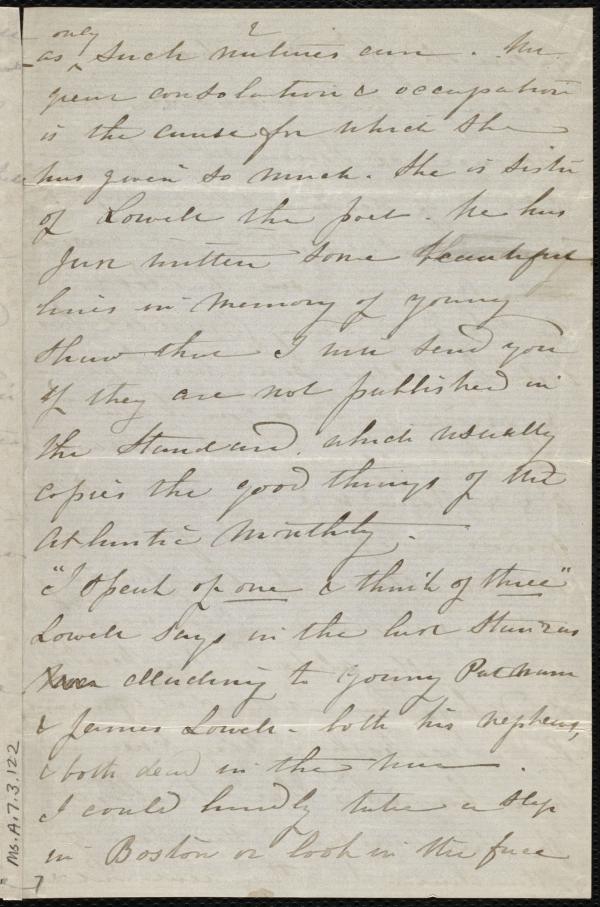 only
as such natures can. Her
great consolation & occupation
is the cause for which she
has given so much. She is sister
of Lowell the poet. He has
just written some beautiful
lines in memory of young
Shaw that I will send you
if they are not published in
the Standard, which usually
copies the good things of the
Atlantic Monthly.
"I speak of one & think of three"
Lowell says in the last stanzas
alluding to young Putnam
& James Lowell - both his nephews,
& both dead in the war.
I could hardly take a step
in Boston or look in the face
Ms.A.7.3.122
7
2